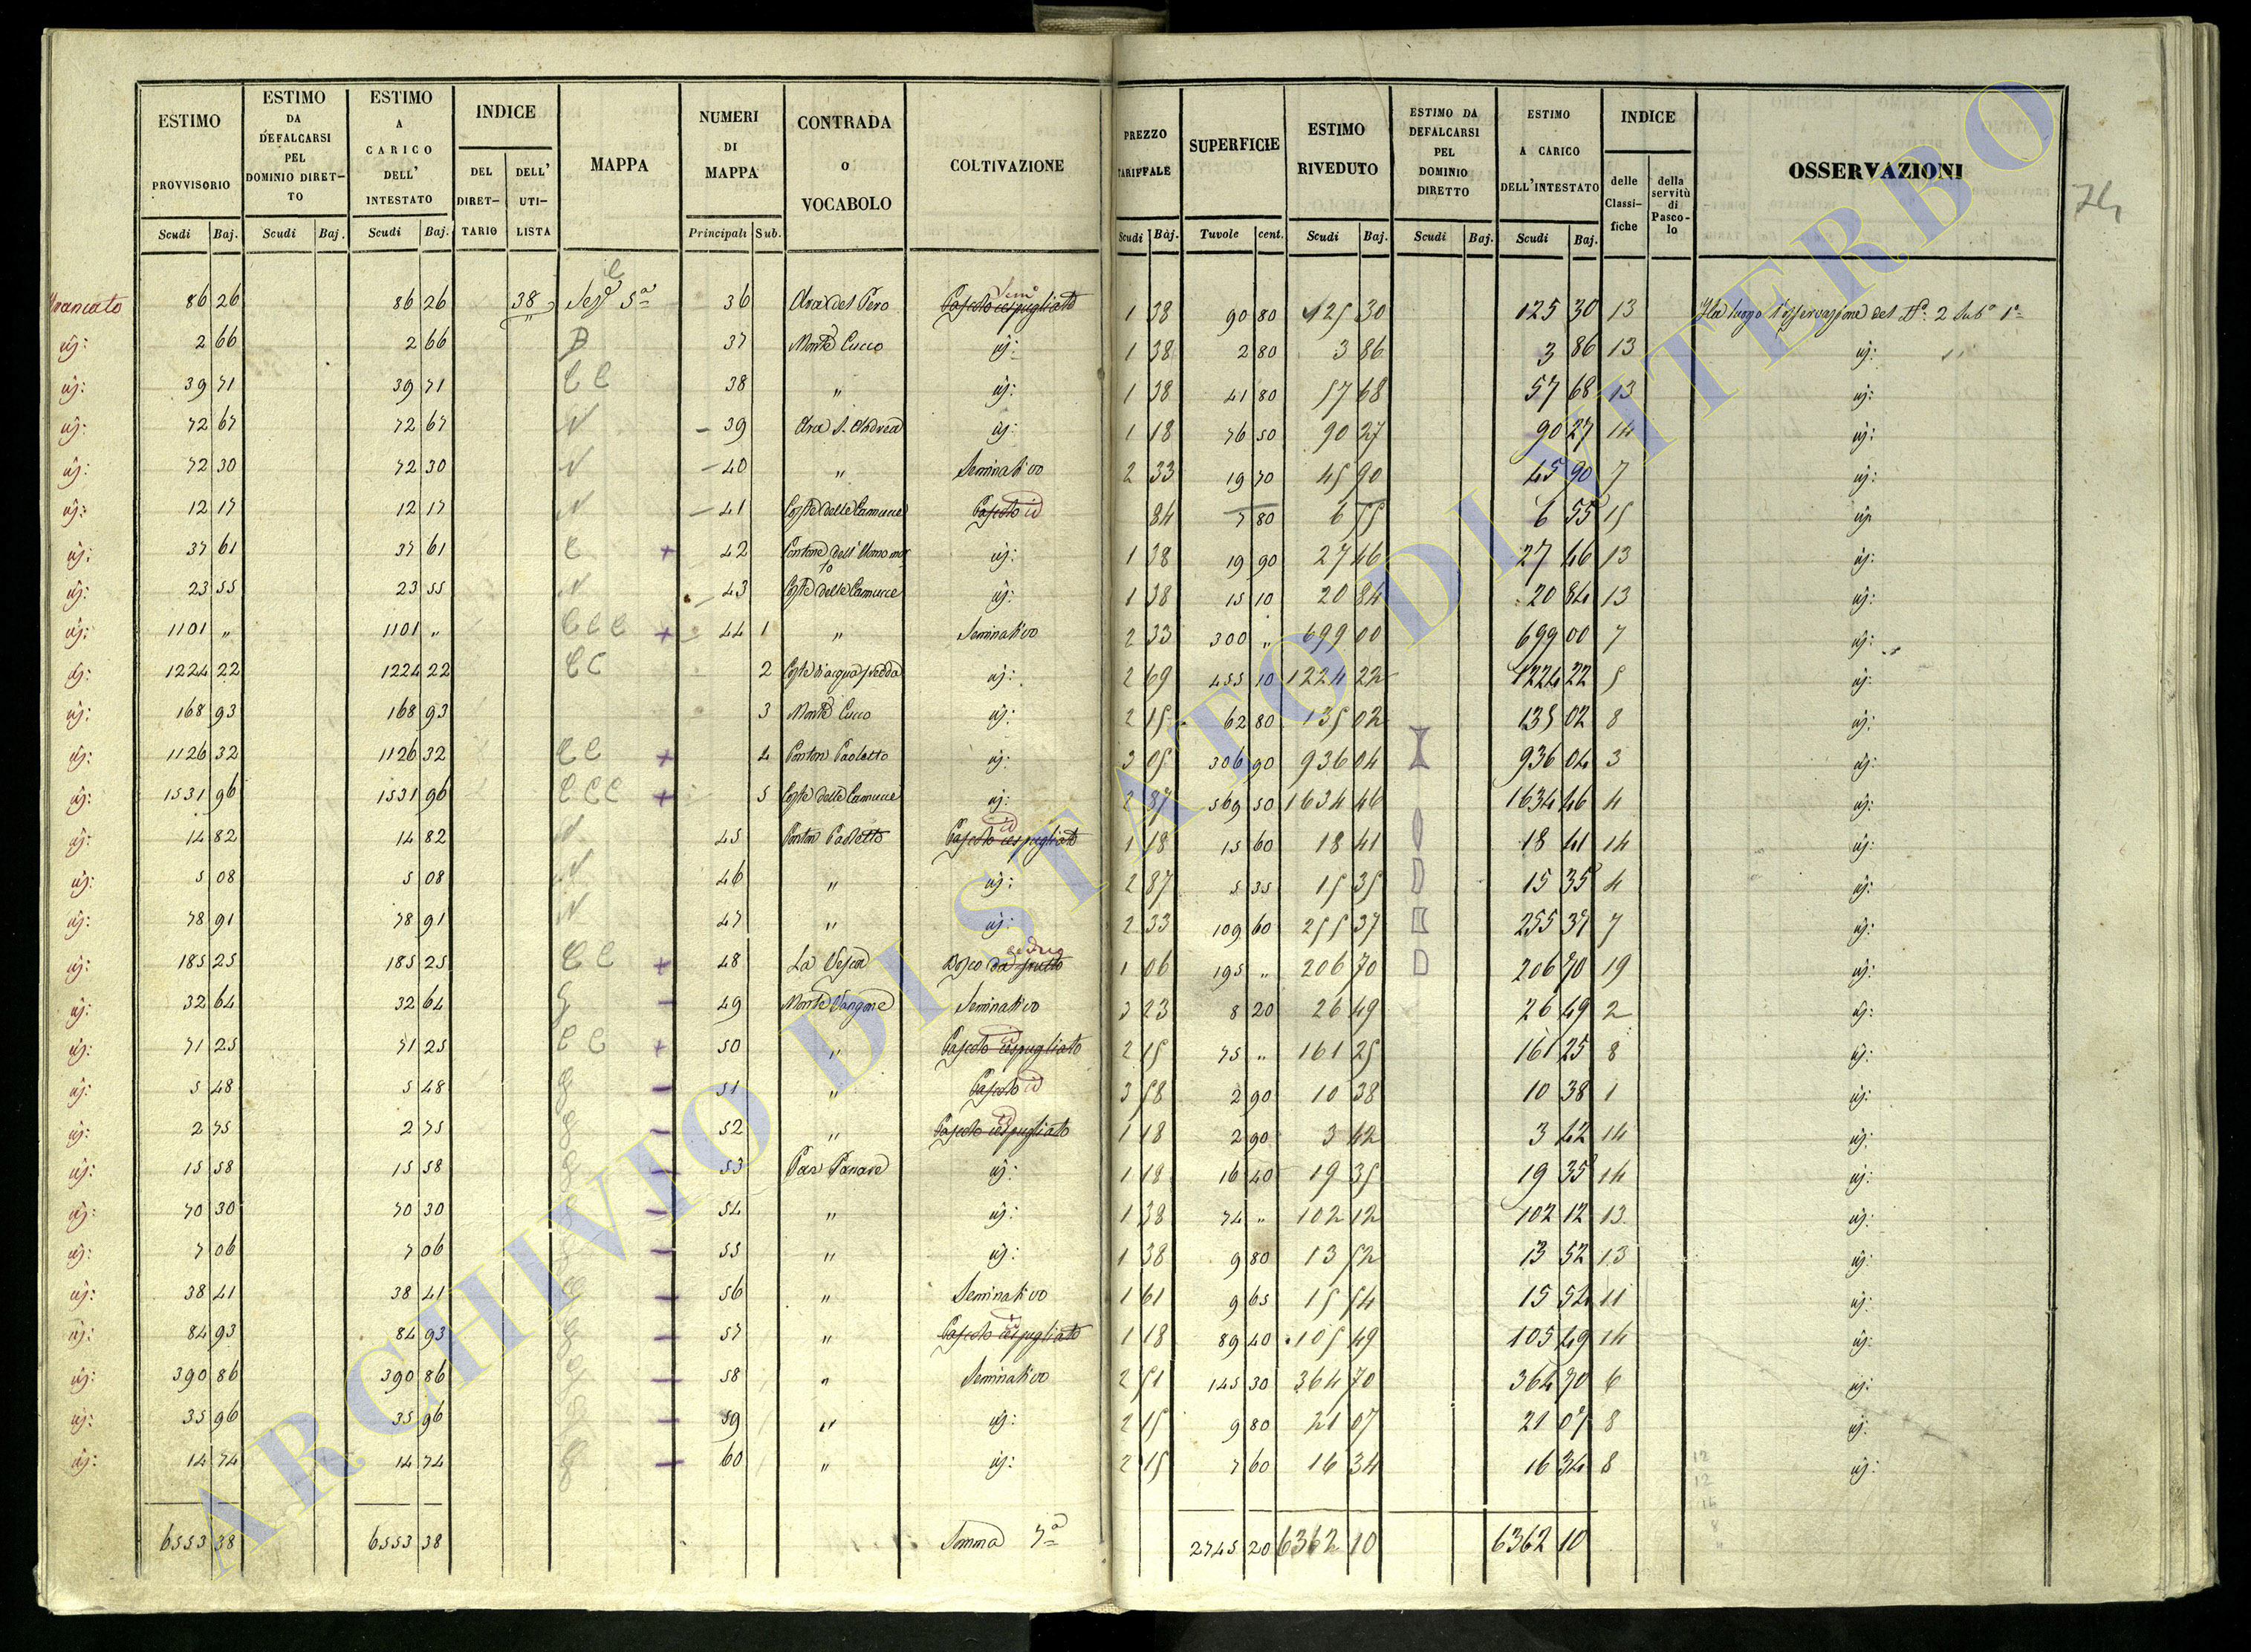 ESTIMO PROVVISORIO Scudi Baj.
ESTIMO DA DEFALCARSI PEL DOMINIO DIRET-TO Scudi Baj.
ESTIMO A CARICO DELL' INTESTATO Scudi Baj.
INDICE DEL DIRET-TARIO DELL' UTI-LISTA
MAPPA
NUMERI DI MAPPA Principali Sub.
CONTRADA o VOCABOLO
COLTIVAZIONE
PREZZO TARIFFALE Scudi Baj.
SUPERFICIE Tavole cent.
ESTIMO RIVEDUTO Scudi Baj.
ESTIMO DA DEFALCARSI PEL DOMINIO DIRETTO Scudi Baj.
ESTIMO A CARICO DELL'INTESTATO Scudi Baj.
INDICE delle Classi-fiche della servitù di Pasco-lo
OSSERVAZIONI
74
86 26 86 26 38 Sez.e 5a 36 Ara del Pero Pascolo cespugliato Sem.o 1 38 90 80 125 30 125 30 13 Ha luogo l'osservazione del N.o 2 Sub.o 1o
id: 2 66 2 66 B 37 Monte Cucco id: 1 38 2 80 3 86 3 86 13 id:
id: 39 71 39 71 C C 38 " id: 1 38 41 80 57 68 57 68 13 id:
id: 72 67 72 67 N 39 Ara S. Andrea id: 1 18 76 50 90 27 90 27 14 id:
id: 72 30 72 30 N 40 " Seminativo 2 33 19 70 45 90 45 90 7 id:
id: 12 17 12 17 N 41 Coste delle Camucce Pascolo id 84 7 80 6 55 6 55 15 id:
id: 37 61 37 61 C + 42 Pontone dell'Uomo morto id: 1 38 19 90 27 46 27 46 13 id:
id: 23 55 23 55 N 43 Coste delle Camucce id: 1 38 15 10 20 84 20 84 13 id:
id: 1101 " 1101 " C C C + 44 1 " Seminativo 2 33 300 " 699 00 699 00 7 id:
id: 1224 22 1224 22 C C 2 Coste d'acqua fredda id: 2 69 455 10 1224 22 1224 22 5 id:
id: 168 93 168 93 3 Monte Cucco id: 2 15 62 80 135 02 135 02 8 id:
id: 1126 32 1126 32 C C + 4 Ponton Paoletto id: 3 05 306 90 936 04 936 04 3 id:
id: 1531 96 1531 96 C C C + 5 Coste delle Camucce id: 2 87 569 50 1634 46 1634 46 4 id:
id: 14 82 14 82 N 45 Ponton Paoletto Pascolo cespugliato id 1 18 15 60 18 41 18 41 14 id:
id: 5 08 5 08 N 46 " id: 2 87 5 35 15 35 15 35 4 id:
id: 78 91 78 91 N 47 " id: 2 33 109 60 255 37 255 37 7 id:
id: 185 25 185 25 C C + 48 La Vesca Bosco da frutto ceduo 1 06 195 " 206 70 206 70 19 id:
id: 32 64 32 64 49 Seminativo 3 23 8 20 26 49 26 49 2 id:
id: 71 25 71 25 C C + 50 " Pascolo cespugliato id 2 15 75 " 161 25 161 25 8 id:
id: 5 48 5 48 51 " Pascolo id 3 58 2 90 10 38 10 38 1 id:
id: 2 75 2 75 52 " Pascolo cespugliato id 1 18 2 90 3 42 3 42 14 id:
id: 15 58 15 58 53 id: 1 18 16 40 19 35 19 35 14 id:
id: 70 30 70 30 54 " id: 1 38 74 " 102 12 102 12 13 id:
id: 7 06 7 06 55 " id: 1 38 9 80 13 52 13 52 13 id:
id: 38 41 38 41 56 " Seminativo 1 61 9 65 15 54 15 54 11 id:
id: 84 93 84 93 57 " Pascolo cespugliato id 1 18 89 40 105 49 105 49 14 id:
id: 390 86 390 86 58 " Seminativo 2 51 145 30 364 70 364 70 6 id:
id: 35 96 35 96 59 " id: 2 15 9 80 21 07 21 07 8 id:
id: 14 74 14 74 60 " id: 2 15 7 60 16 34 16 34 8 id:
6553 38 6553 38 Somma 7a 2745 20 6362 10 6362 10
ARCHIVIO DI STATO DI VITERBO